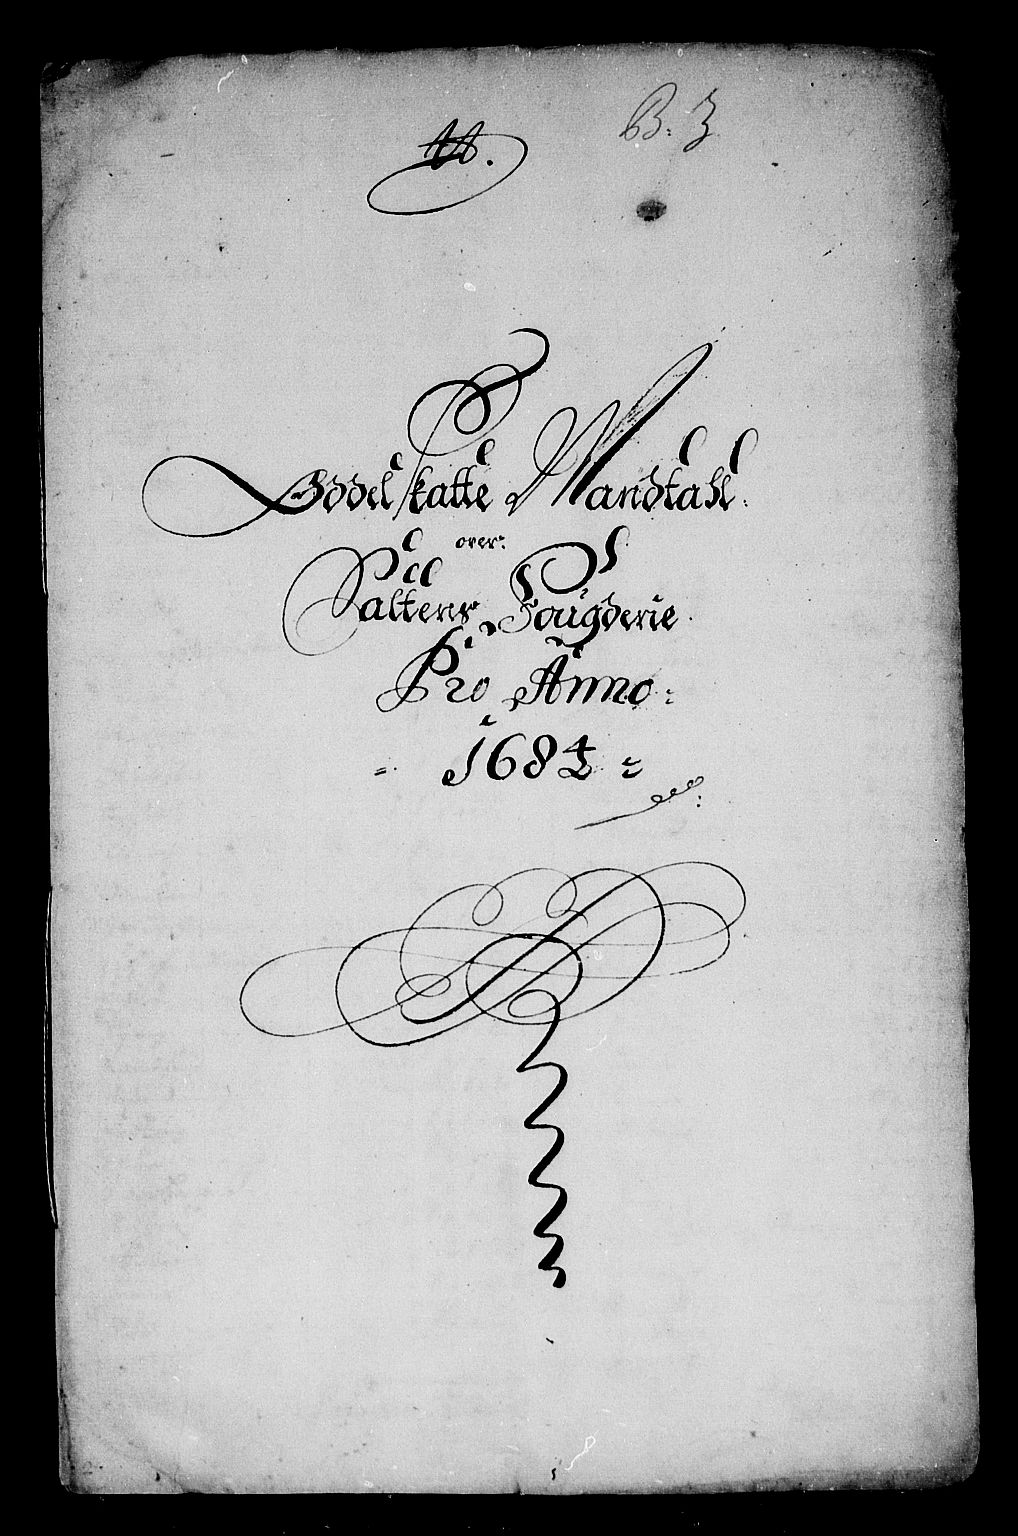 B: 3
Oddel skatte Mandtall:
over:
Saltens Fougderie.
Pro Anno:
1684